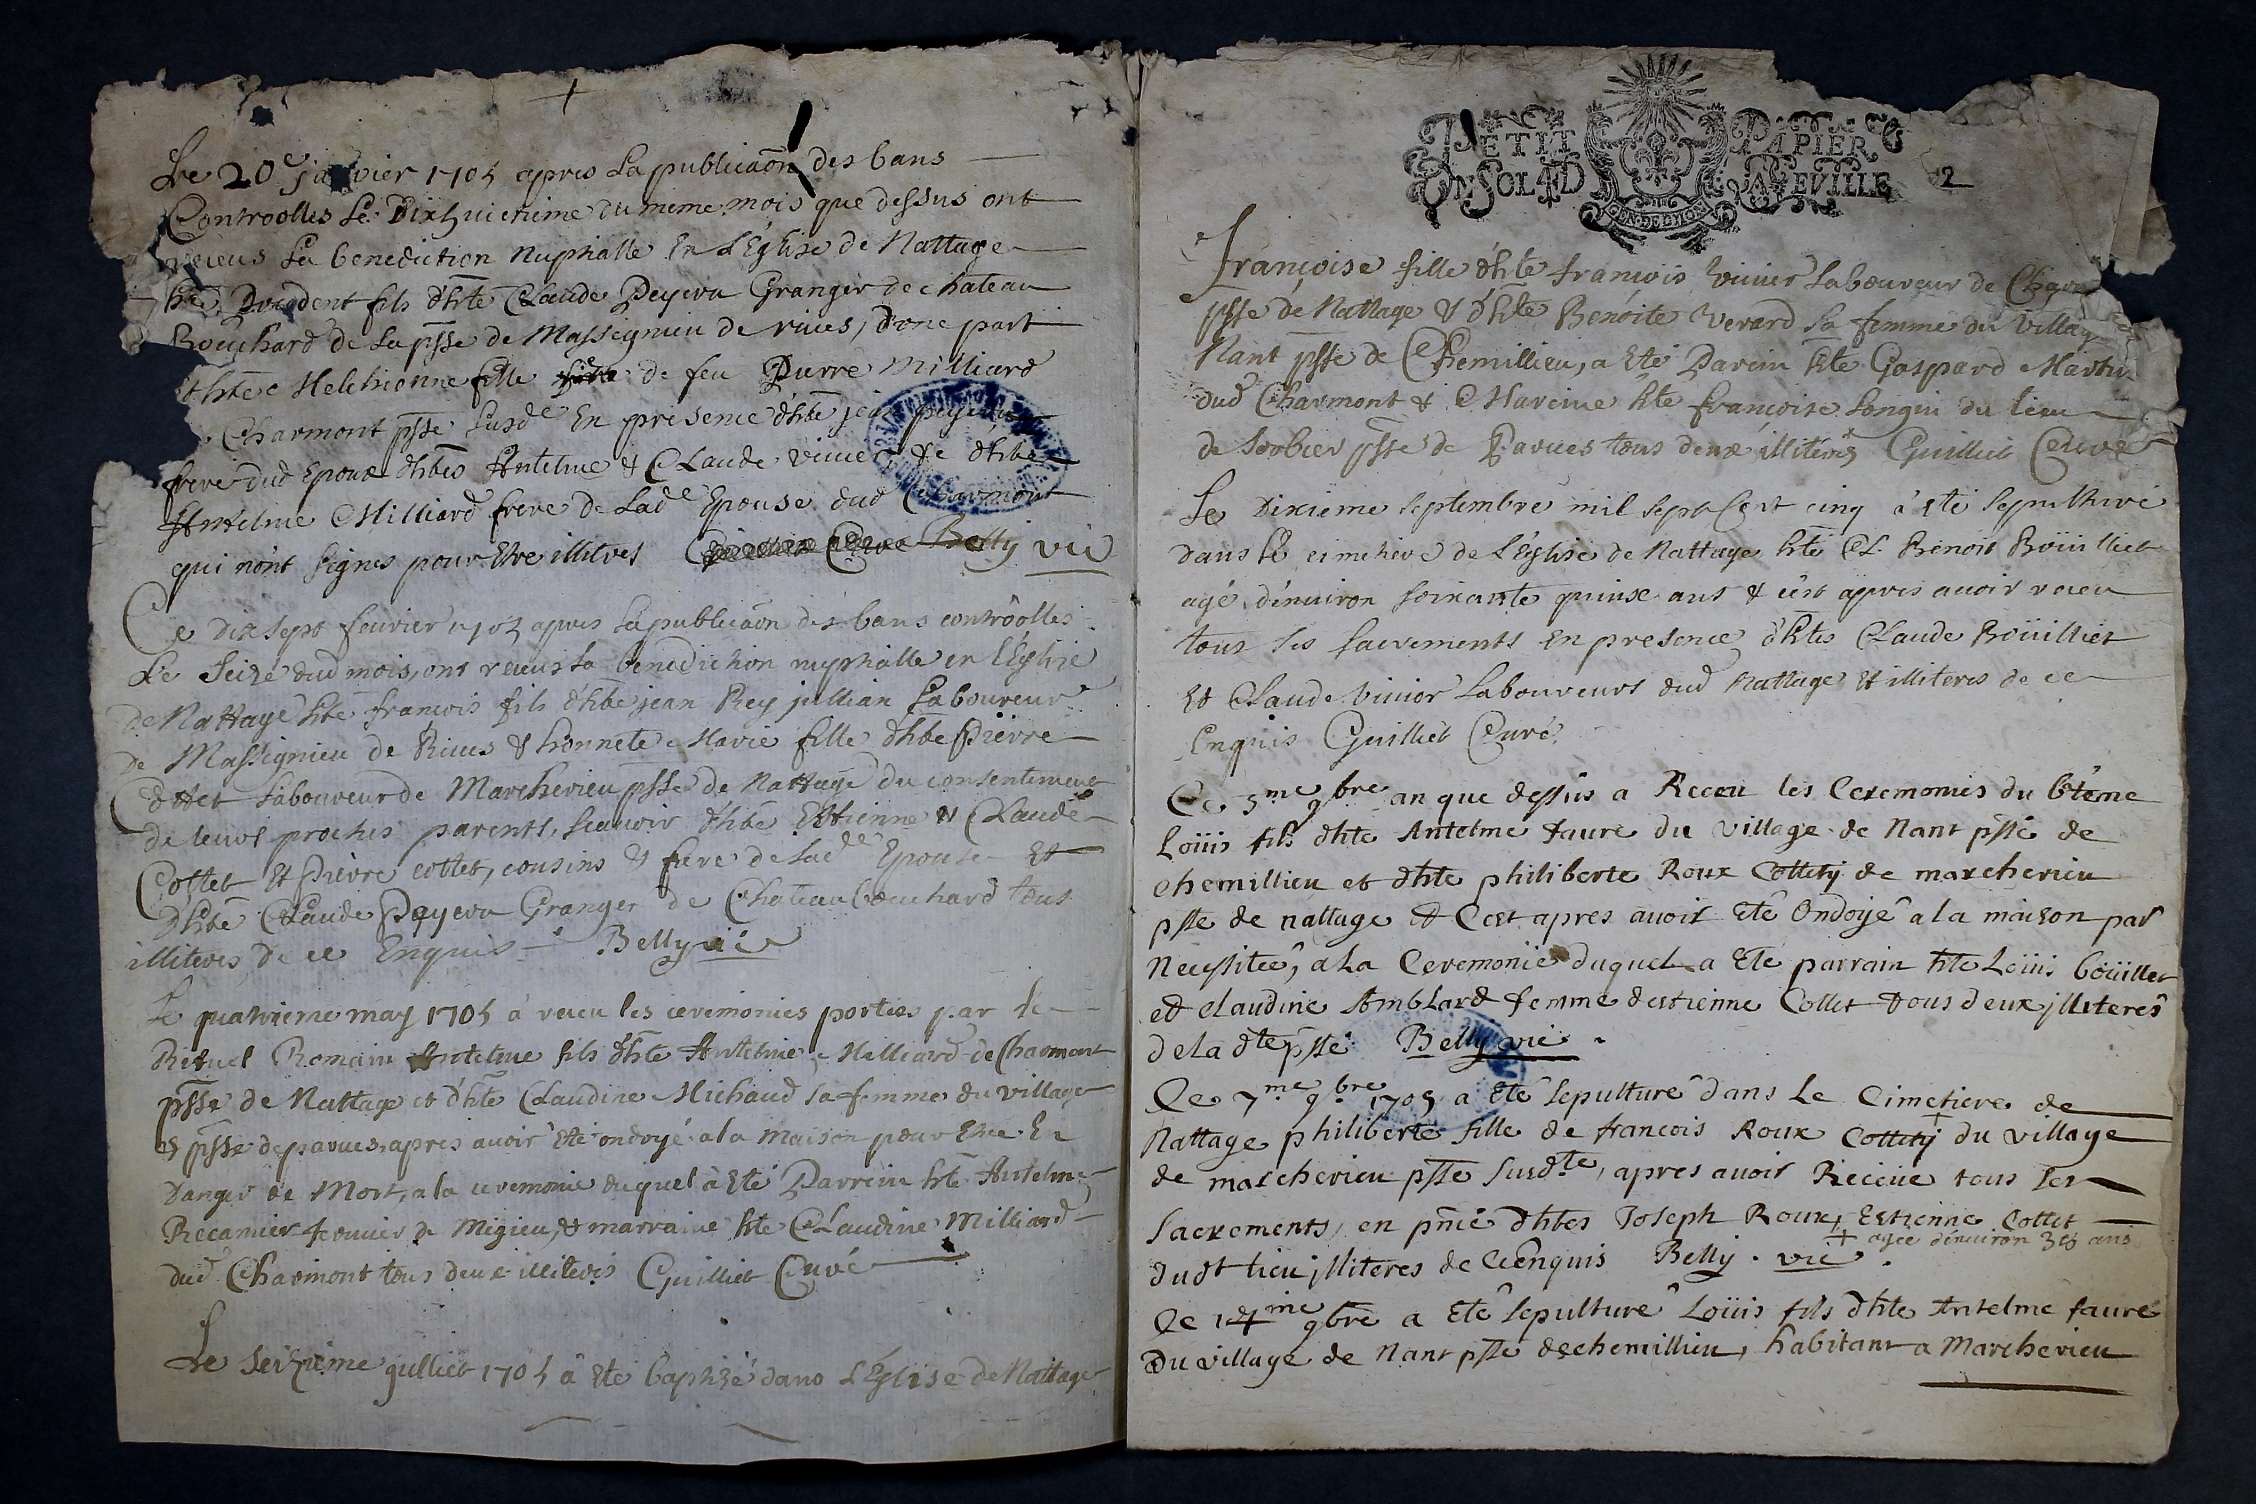 Le 20e janvier 1705 apres La publicaôn des bans
Controolles Le Dixhuictieme du meme mois que dessus ont
receus La benediction nuphialle En L'Eglise de Nattage
hte fils d'hte Claude Peyeru Granger de chateau
Bouchard de La psse de Massegnieu de rives, d'une part
& hte Melchionne fille de feu Pierre Milliard
Charmont psse susde En presence d'hte jean peyeru
frere dud Epoux d'htes Antelme & Claude vivier & d'hte
Antelme Milliard frere de Lade Epouse dud Charmont
qui n'ont signes pour Etre illitres Belly vic
Ce dix sept fevrier 1705 apres La publicaôn des bans controolles
Le Seize dud mois, ont receus La benediction nuphialle en L'Eglise
de Nattage hte francois fils d'hte jean Rey jullian Laboureur
de Massignieu de Rives & honnete Marie fille d'hte Pierre
Cottet Laboureur de Marcherieu psse de Nattage du consentement
de leurs proches parents, scavoir d'hte Estienne & Claude
Cottet et Pierre cottet, cousins & frere de Lade Epouse Et
d'hte Claude Peyeru Granger de Chateau bouchard tous
illiteres de ce Enquis Belly vic
Le quatrieme may 1705 à receu les ceremonies portées par le
Rituel Romain Antelme fils d'hte Antelme Milliard de Charmont
psse de Nattage et d'hte Claudine Michaud sa femme du village
& psse de parves, apres avoir Eté ondoyé a la maison pour Etre En
Danger de Mort, a la ceremonie duquel à Eté Parrein hte Antelme
Recamier fermier de Migieu, & marraine hte Claudine Milliard
dud Charmont tous deux illiteres Guilliet Curé
Le seizieme julliet 1705 à Eté baptizé dans L'Eglise de Nattage
PETIT PAPIER
UN SOL 4 D LA FEVILLE
GEN. DE DIION
2
Françoise fille d'hte françois vivier Laboureur de Char
psse de Nattage & d'hte Benoite Verard sa femme du Villag
Nant psse de Chemillieu, a Eté Parein hte Gaspard Martin
dud Charmont & Mareine hte françoise Longin du lieu
de Sorbier psse de Parves tous deux illiterés Guilliet Curé
Le Dixieme Septembre mil sept Cent cinq à eté sepulturé
dans le cimetiere de L'Eglise de Nattage hte Cl. Benoit Boüilliet
agé d'environ soixante quinse ans & c'est apres avoir receu
tous ses sacrements En presence d'htes Claude Boüilliet
Et Claude Vivier Laboureurs dud Nattage Et illiteres de ce
Enquis Guilliet Curé
Ce 5me 9bre an que dessus a Receu les Ceremonies du bteme
Loüis fils d'hte Antelme faure du village de Nant psse de
chemillieu et d'hte philiberte Roux Collety de marcherieu
psse de nattage et C'est apres avoir Eté Ondoyé a la maison par
Necessitée, a La Ceremonie duquel a Eté parrain hte Loüis boüillet
et claudine Amblard femme d'estienne Collet tous deux jlliterés
de la dte psse Belly vic
Ce 7me 9bre 1705 a Eté sepulturé dans Le Cimetiere de
Nattage philiberte fille de francois Roux Collety + du village
de marcherieu psse susdte, apres avoir Receüe tous Les
Sacrements, en pnce d'htes Joseph Roux, Estienne Collet
+ agee d'environ 38 ans
dudt lieu jlliteres de ce Enquis Belly . vic .
Ce 14me 9bre a Eté sepulturé Loüis fils d'hte Antelme faure
du village de Nant psse de chemillieu, habitant a Marcherieu